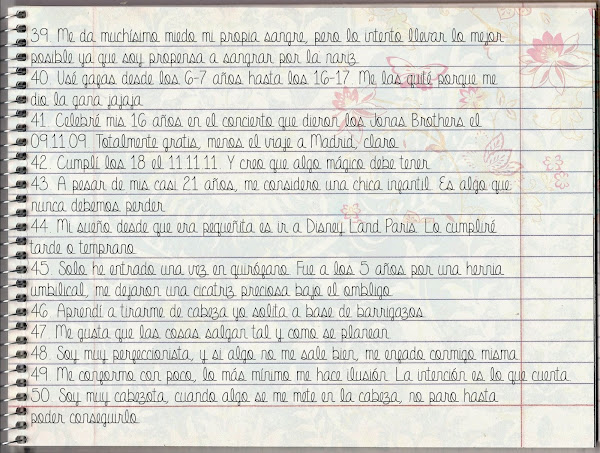 39. Me da muchísimo miedo mi propia sangre, pero lo intento llevar lo mejor
posible ya que soy propensa a sangrar por la nariz.
40. Usé gafas desde los 6-7 años hasta los 16-17. Me las quité porque me
dio la gana jajaja
41. Celebré mis 16 años en el concierto que dieron los Jonas Brothers el
09.11.09. Totalmente gratis, menos el viaje a Madrid, claro.
42. Cumplí los 18 el 11.11.11. Y creo que algo mágico debe tener
43. A pesar de mis casi 21 años, me considero una chica infantil. Es algo que
nunca debemos perder
44. Mi sueño desde que era pequeñita es ir a Disney Land Paris. Lo cumpliré
tarde o temprano
45. Solo he entrado una vez en quirófano. Fue a los 5 años por una hernia
umbilical, me dejaron una cicatriz preciosa bajo el ombligo
46. Aprendí a tirarme de cabeza yo solita a base de barrigazos
47. Me gusta que las cosas salgan tal y como se planean
48. Soy muy perfeccionista, y si algo no me sale bien, me enfado conmigo misma
49. Me conformo con poco, lo más mínimo me hace ilusión. La intención es lo que cuenta
50. Soy muy cabezota, cuando algo se me mete en la cabeza, no paro hasta
poder conseguirlo